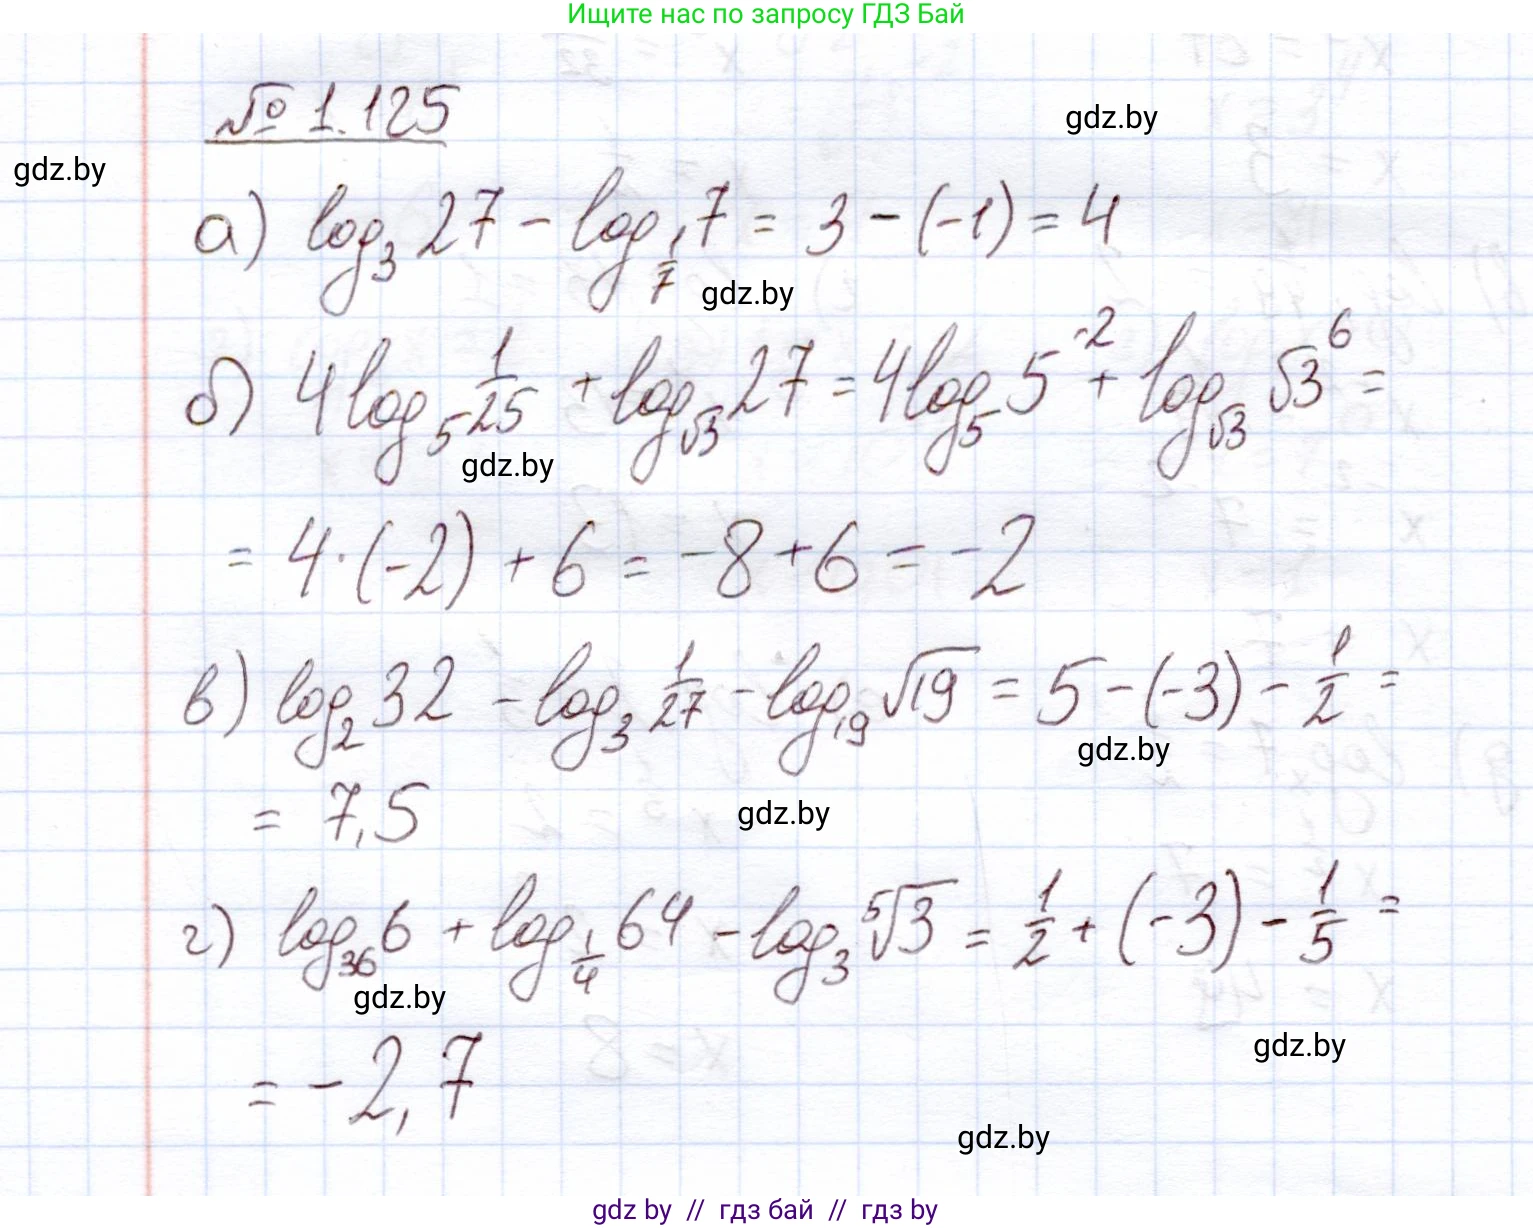 Ищите нас по запросу ГДЗ Бай
№ 1.125
gdz.by
gdz.by
а) log₃ 27 - log_{1/7} 7 = 3 - (-1) = 4
gdz.by
б) 4 log₅ 1/25 + log_{√3} 27 = 4 log₅ 5⁻² + log_{√3} √3⁶ =
gdz.by
= 4·(-2) + 6 = -8 + 6 = -2
в) log₂ 32 - log₃ 1/27 - log₁₉ √19 = 5 - (-3) - 1/2 =
gdz.by
= 7,5
gdz.by
г) log₃₆ 6 + log_{1/4} 64 - log₃ ⁵√3 = 1/2 + (-3) - 1/5 =
gdz.by
gdz.by
= -2,7
gdz.by
gdz by // гдз бай // гдз by